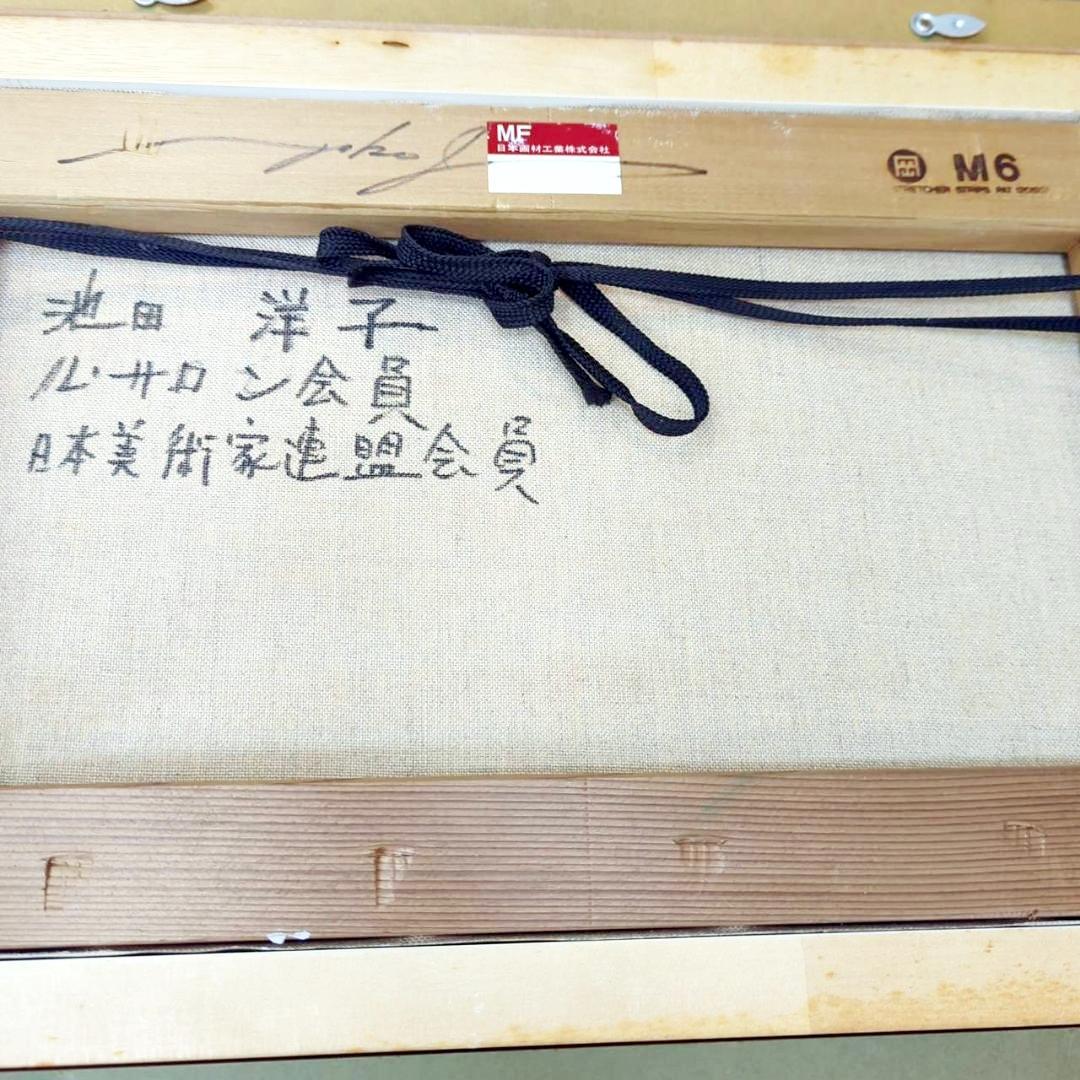 yoko
MF
日本画材工業株式会社
M6
STRETCHER STRIPS PAT
池田 洋子
ル・サロン会員
日本美術家連盟会員